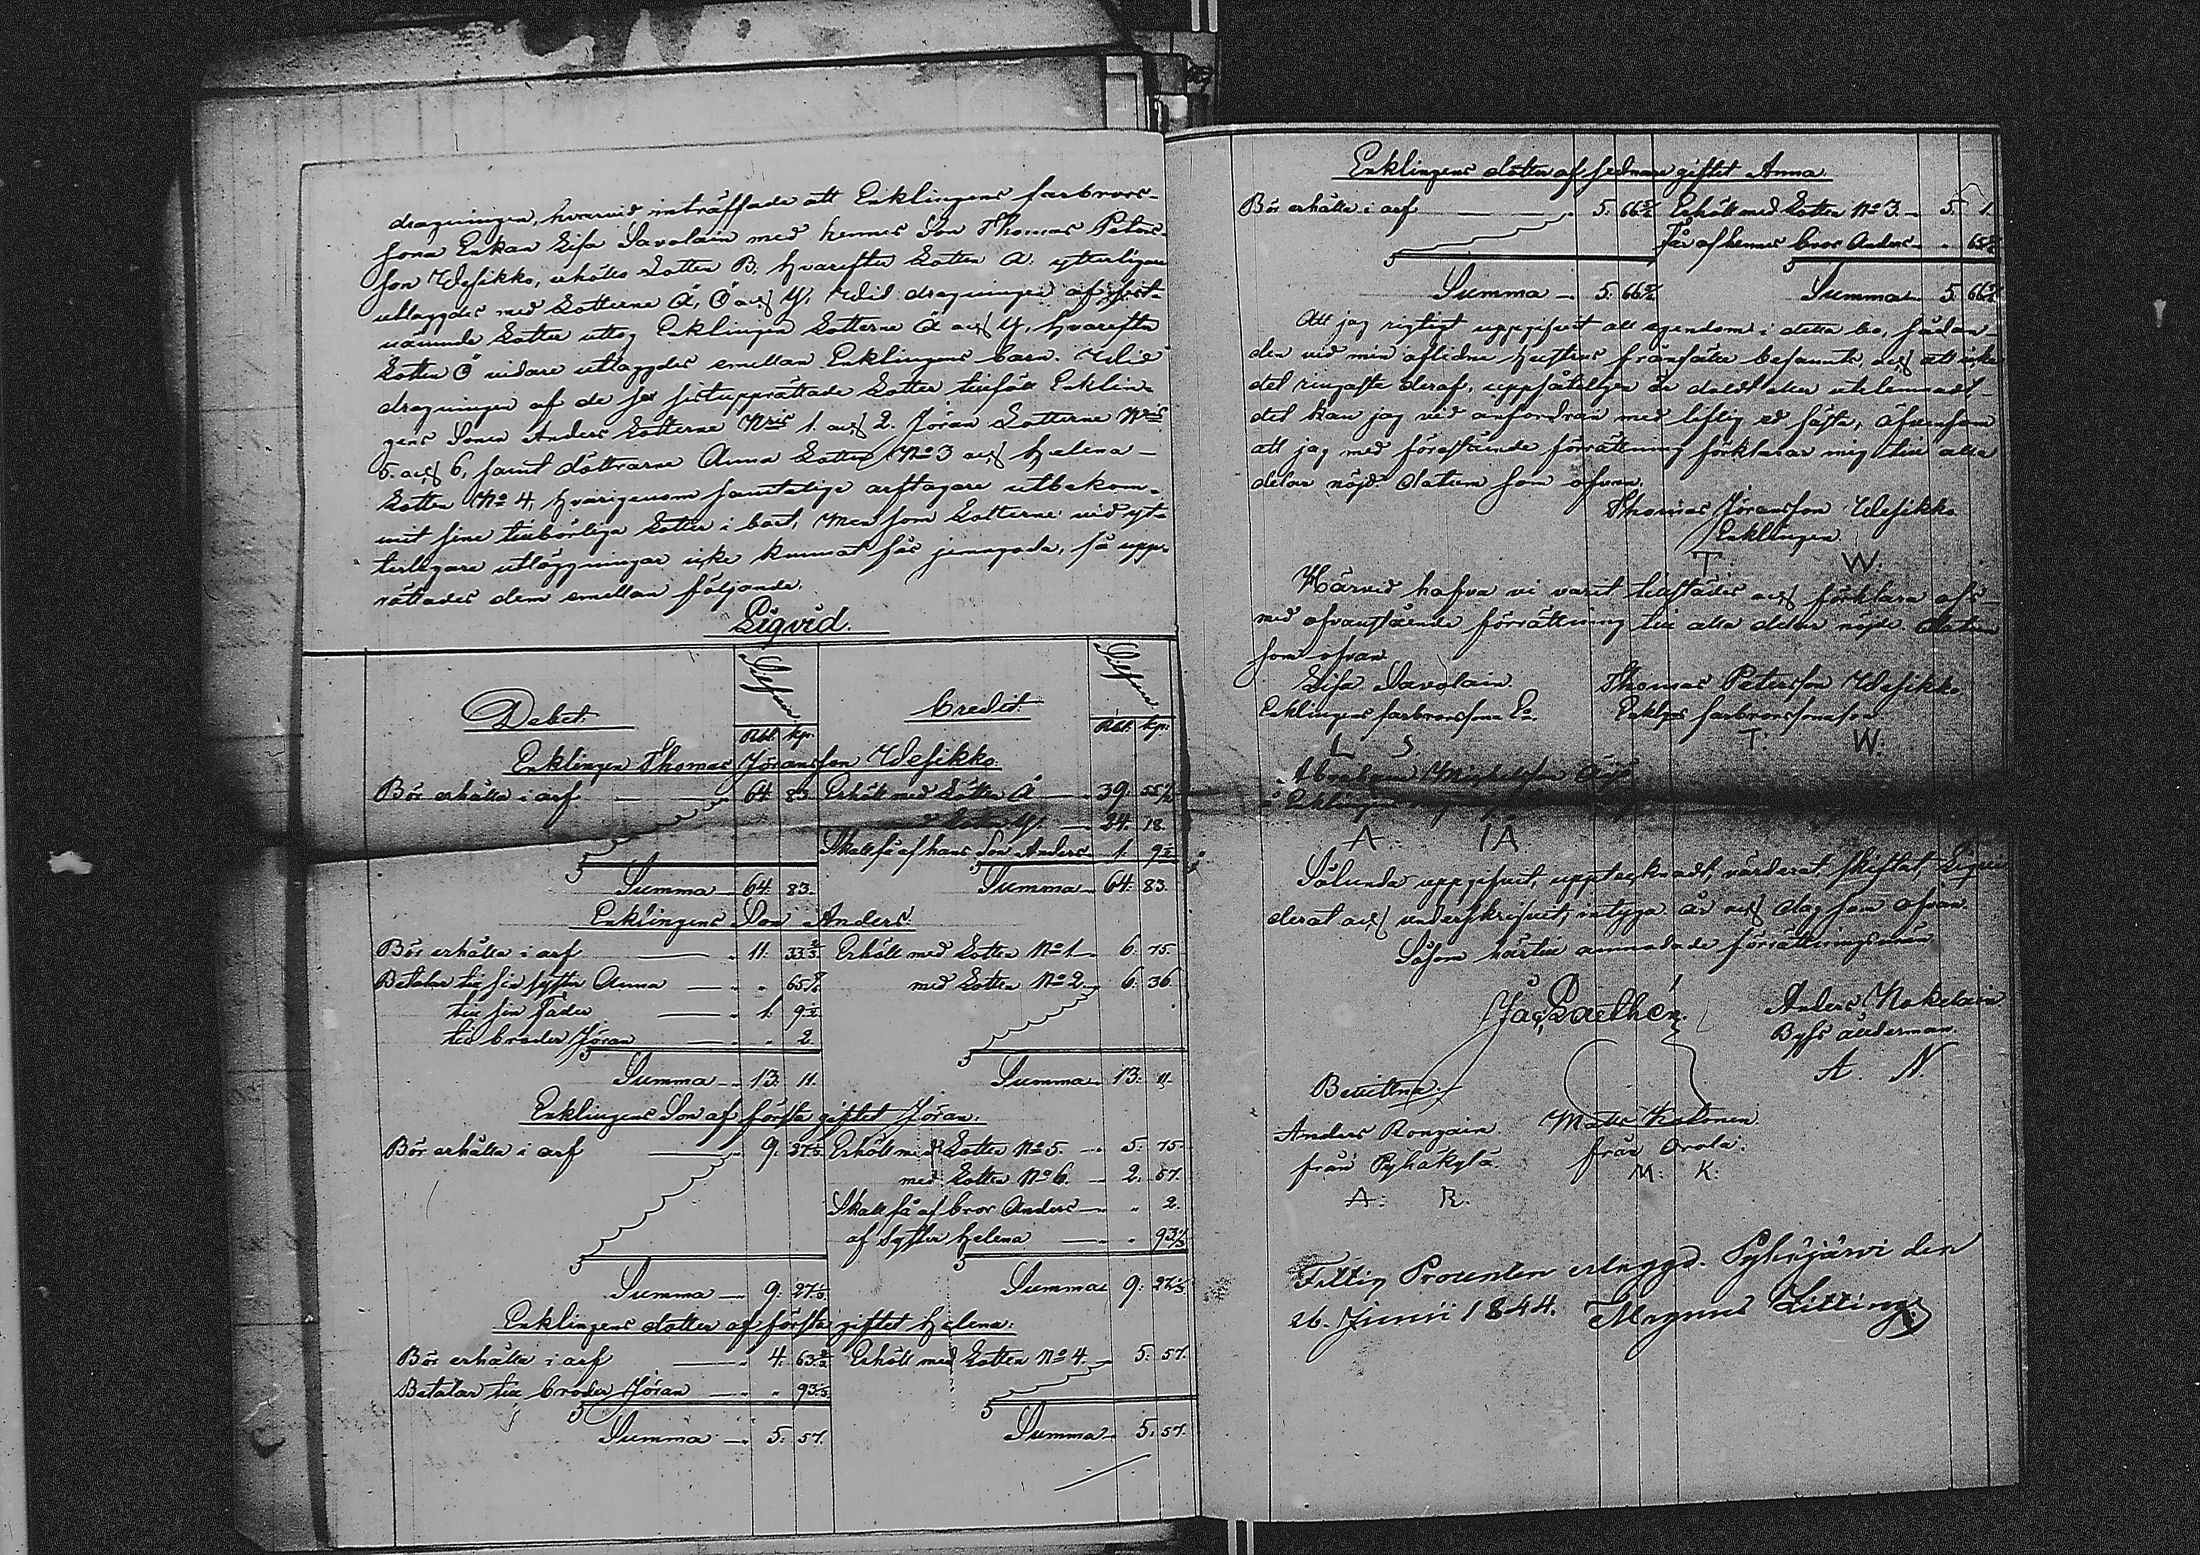 dragningen, hvarvid inträffade att Enklingens farbrors-
sons Enkan Lisa Savolain med hennes Son Thomas Peters-
son Wesikko, erhöllo Lotten B. hvarefter Lotten A. ytterligare
utlaggdes med Lotterne Ä, Ö och Y. Wid dragningen af sist-
nämnde Lotter uttog Enklingen Lotterne Ä och Y, hvarefter
Lotten Ö vidare utlaggdes emellan Enklingens barn. Wid
dragningen af de sex sistupprättade Lotter tillföll Enklin-
gens Sonen Anders Lotterne Nris 1. och 2. Jöran Lotterne Nris
5. och 6, samt döttrarne Anna Lotten No 3 och Helena
Lotten No 4, hvarigenom samtelige arftagare utbekom-
mit sine tillbörliga Lotter i boet, men som Lotterne vid yt-
terligare utläggningar icke kunnat fås jemngoda, så upp-
rättades dem emellan följande.
Liqvid.
Debet. Silfver Credit. Silfver
Rbl. kp. Rbl. kp.
Enklingen Thomas Jöransson Wesikko.
Bör erhålla i arf 64 83 Erhöll med Lotten Ä 39. 55 1/2
med Lotten Y. 24. 18.
Skall få af hans Son Anders 1. 9 1/2
Summa 64. 83. Summa 64. 83.
Enklingens Son Anders.
Bör erhålla i arf 11. 33 2/3 Erhöll med Lotten No 1 6. 75.
Betalar till sin syster Anna " 65 5/6 med Lotten No 2 6. 36
till sin Fader 1. 9 1/2
till broder Jöran " 2.
Summa 13. 11. Summa 13. 11.
Enklingens Son af första giftet Jöran.
Bör erhålla i arf 9. 27 1/3 Erhöll med Lotten No 5. 5. 75.
med Lotten No 6. 2. 57.
Skall få af bror Anders " 2.
af Syster Helena " 93 1/3
Summa 9. 27 1/3 Summa 9. 27 1/3
Enklingens dotter af första giftet Helena.
Bör erhålla i arf 4. 63 2/3 Erhöll med Lotten No 4. 5. 57.
Betalar till broder Jöran " 93 1/3
Summa 5. 57. Summa 5. 57.
Enklingens dotter af sednare giftet Anna.
Bör erhålla i arf 5. 66 5/6 Erhöll med Lotten No 3. 5. 1.
Får af hennes bror Anders " 65 5/6
Summa 5. 66 5/6 Summa 5. 66 5/6
Att jag rigtigt uppgifvit all egendom i detta bo, sådan
den vid min aflidne hustrus frånfälle befanns, och att icke
det ringaste deraf, uppsåteligen är doldt eller utelemnadt,
det kan jag vid anfordran med liflig ed fästa, äfvensom
att jag med förestående förrättning förklarar mig till alla
delar nöjd. Datum som ofvan.
Thomas Jöransson Wesikko
Enklingen.
T. W.
Härvid hafva vi varit tillstädes och förklara oss
med ofvanstående förrättning till alla delar nöjde. Datum
som ofvan.
Lisa Savolain. Thomas Petersson Wesikko
Enklingens farbrorssons Ea. Enklgs farbrorssonsson.
L S. T. W.
Abraham Michelsson
Enklingens
A IÄ
Sålunda uppgifvit, upptecknadt, värderat, skiftat, Liqvi-
derat och underskrifvit, intyga år och dag som ofvan.
Såsom härtill anmodade förrättningsmän
Anders Nokelain
Bys ålderman.
A. N.
Bevittna.
Anders Rongain Matts Kokonen
från Pyhäkylä. från Orola.
A. R. M. K.
Fattig Procenten erlaggd. Pyhäjärvi den
26. Junii 1844. Magnus